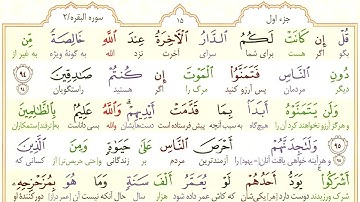 سوره البقره/۲ ۱۵ جزء اول
قُلْ إِن كَانَتْ لَكُمُ الدَّارُ الْآخِرَةُ عِندَ اللَّهِ خَالِصَةً مِّن
بگو اگر هست برای شما سرای آخرت نزد الله به گونهٔ ویژه به غیر از
دُونِ النَّاسِ فَتَمَنَّوُا الْمَوْتَ إِن كُنتُمْ صَادِقِينَ ۹۴
دیگر مردمان مرگ را اگر هستید راستگویان
وَلَن يَتَمَنَّوْهُ أَبَدًا بِمَا قَدَّمَتْ أَيْدِيهِمْ وَاللَّهُ عَلِيمٌ بِالظَّالِمِينَ
و هرگز آرزو نخواهند کرد آن را هیچ‌گاه به سبب آنچه پیش فرستاده است دست‌هایشان و الله بسی داناست به ستمکاران
۹۵ وَلَتَجِدَنَّهُمْ أَحْرَصَ النَّاسِ عَلَىٰ حَيَاةٍ وَمِنَ الَّذِينَ
آزمندترین مردم بر زندگانی کسانی که
أَشْرَكُوا يَوَدُّ أَحَدُهُمْ لَوْ يُعَمَّرُ أَلْفَ سَنَةٍ وَمَا هُوَ بِمُزَحْزِحِهِ
شرک ورزیدند دوست دارد هر یکی‌شان که هزار سال